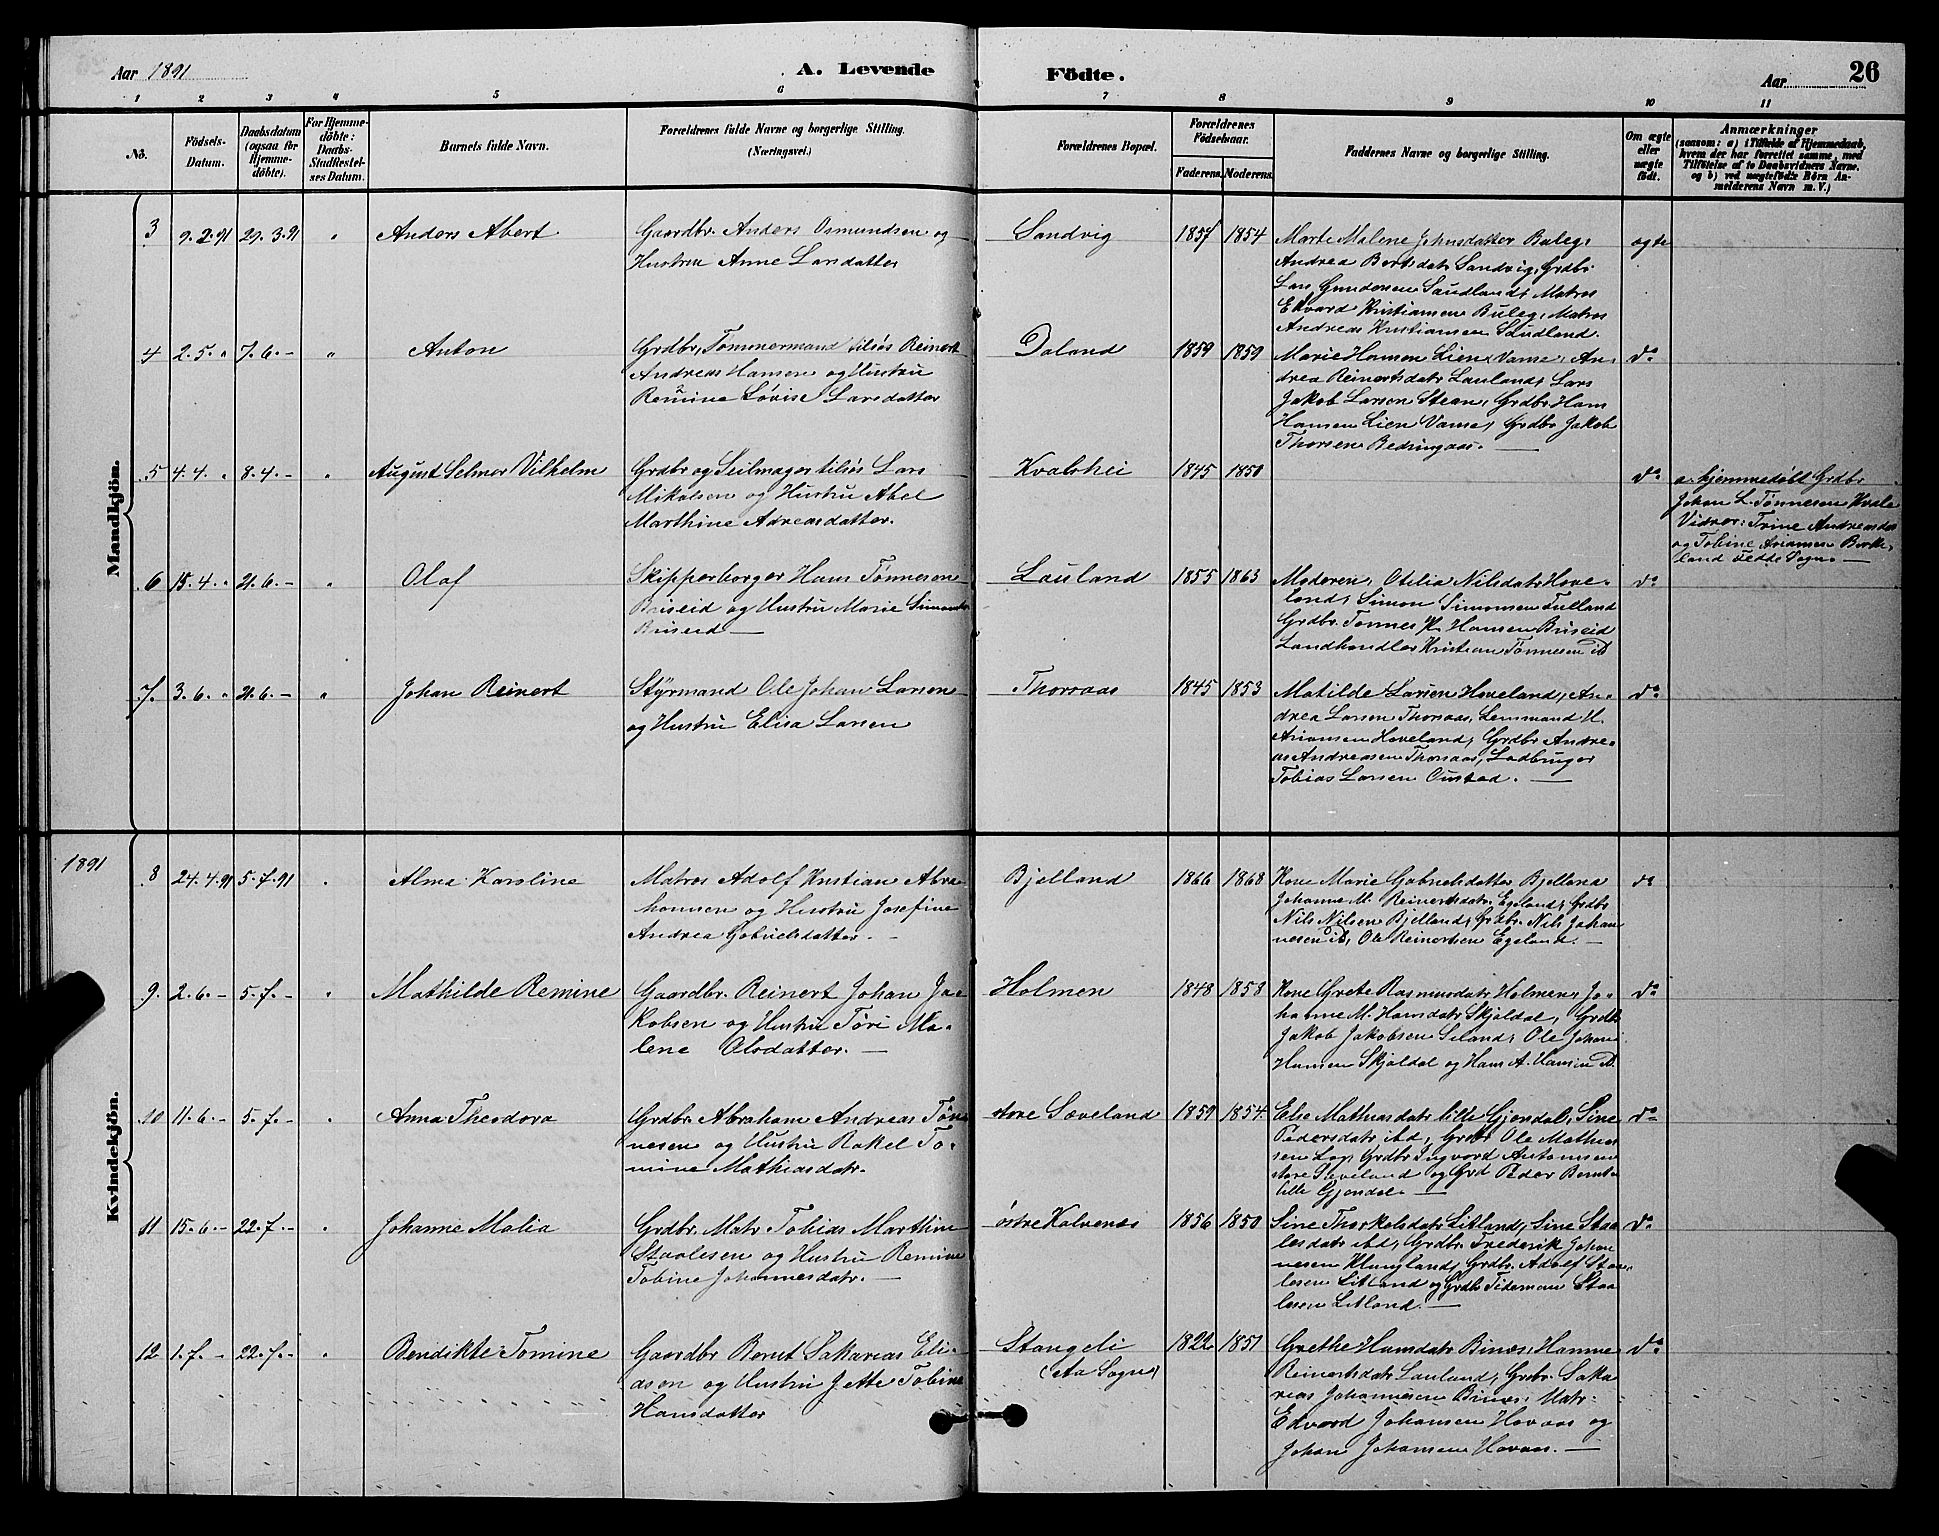 Aar 1891
A. Levende Födte.
Aar
26
1 2 3 4 5 6 7 8 9 10 11
No.
Födsels-Datum.
Daabsdatum (ogsaa for Hjemmedöbte).
For Hjemmedöbte: Daabs-Stadfestelses Datum.
Barnets fulde Navn.
Forældrenes fulde Navne og borgerlige Stilling.
(Næringsvei.)
Forældrenes Bopæl.
Forældrenes Födselsaar.
Faderens. Moderens.
Faddernes Navne og borgerlige Stilling.
Om ægte eller uægte födt.
Anmærkninger
(saasom: a) i Tilfælde af Hjemmedaab, hvem der har forrettet samme, med Tilföielse af to Daabsvidners Navne, og b) ved uægtefödte Börn Anmelderens Navn m. V.)
Mandkjön.
3 9.2.91 29.3.91 " Anders Abert
Gaardbr. Anders Osmundsen og
Hustru Anne Larsdatter
Sandvig 1857 1854
Marte Malene Johnsdatter Buleg,
Andrea Bertsdatr Sandvig, Grdbr
Lars Gundersen Saudland, Matros
Edvard Kristiansen Buleg, Matros
Andreas Kristiansen Saudland
ægte
4 2.5. " 7.6.- " Anton
Grdbr, Tømmermand tilsös Reinert
Andreas Hansen og Hustru
Remine Lovise Larsdatter
Daland 1859 1859
Marie Hansen Lien Vanse, An-
drea Reinertsdatr Lauland, Lars
Jakob Larsen Stean, Grdbr Hans
Hansen Lien Vanse, Grdbr Jakob
Thorsen Bedringaas. —
do
5 4.4. " 8.4.- " August Selmer Vilhelm
Grdbr og Seilmager tilsös Lars
Mikalsen og Hustru Abel
Marthine Adreasdatter.
Kvalshei 1845 1850
do
a. hjemmedöbt Grdbr
Johan L. Tønnesen Kvale
Vidner: Trine Andreasdr
og Tobine Ariansen Birke-
land Fedde Sogn. —
6 15.4. " 21.6.- " Olaf
Skipperborger Hans Tønnesen
Briseid og Hustru Marie Simonsdr
Briseid —
Lauland 1855 1863
Moderen, Otelia Nilsdatr Hove-
land, Simon Simonsen Fulland
Grdbr. Tønnes K. Hansen Briseid
Landhandler Kristian Tønnesen ib
do
7. 3.6. " 21.6.- " Johan Reinert
Styrmand Ole Johan Larsen
og Hustru Elisa Larsen
Thorsaas 1845 1853
Matilde Larsen Hoveland, An-
drea Larsen Thorsaas, Lensmand H.
Ariansen Hoveland, Grdbr Andre-
as Andreasen Thorsaas, Ladbruger
Tobias Larsen Oustad. —
do
1891
Kvindekjön.
8 24.4.91 5.7.91 " Alma Karoline
Matros Adolf Kristian Abra-
hamsen og Hustru Josefine
Andrea Gabrielsdatter. —
Bjelland 1866 1868
Kone Marie Gabrielsdatter Bjelland
Johanne M. Reinertsdatr Egeland, Grdbr
Nils Nilsen Bjelland, Grdbr. Nils Johan-
nesen ib, Ole Reinertsen Egeland. —
do
9. 2.6.- 5.7.- " Mathilde Remine
Gaardbr. Reinert Johan Ja-
kobsen og Hustru Töri Ma-
lene Olsdatter. —
Holmen 1848 1858
Kone Grete Rasmusdatr Holmen, Jo-
hanne M. Hansdatr Skjoldal, Grdbr
Jakob Jakobsen Seland, Ole Johan
Hansen Skjoldal og Hans A. Hansen ib.
do
10 11.6.- 5.7.- " Anna Theodora
Grdbr. Abraham Andreas Tøn-
nesen og Hustru Rakel To-
mine Mathiasdatr.
store Sæveland 1859 1854
Else Mathiasdatr lille Gjerdal, Sine
Pedersdatr ibd, Grdbr Ole Mathias-
sen Log, Grdbr Ingvard Antonsen
store Sæveland og Grd Peder Berntsn
lille Gjerdal. —
do
11 15.6.- 22.7.- " Johanne Malia
Grdbr. Matr. Tobias Marthin
Staalesen og Hustru Remine
Tobine Johannesdatr. —
østre Kalvenes 1856 1850
Sine Thorkelsdatr Litland, Sine Staa-
lesdatr ibd, Grdbr. Frederik Johan-
nesen Klungland, Grdbr. Adolf Staa-
lesen Litland og Grdbr Tideman Staa-
lesen Litland. —
do
12 1.7.- 22.7.- " Bendikte Tomine
Gaardbr Bernt Sakarias Eli-
asen og Hustru Jette Tobine
Hansdatter
Stangeli
(Aa Sogn) 1822 1851
Grethe Hansdatr Birnes, Hanne
Reinertsdatr Lauland, Grdbr. Saka-
rias Johannesen Birnes, Matr.
Edvard Johansen Hovaas og
Johan Johansen Hovaas. —
do